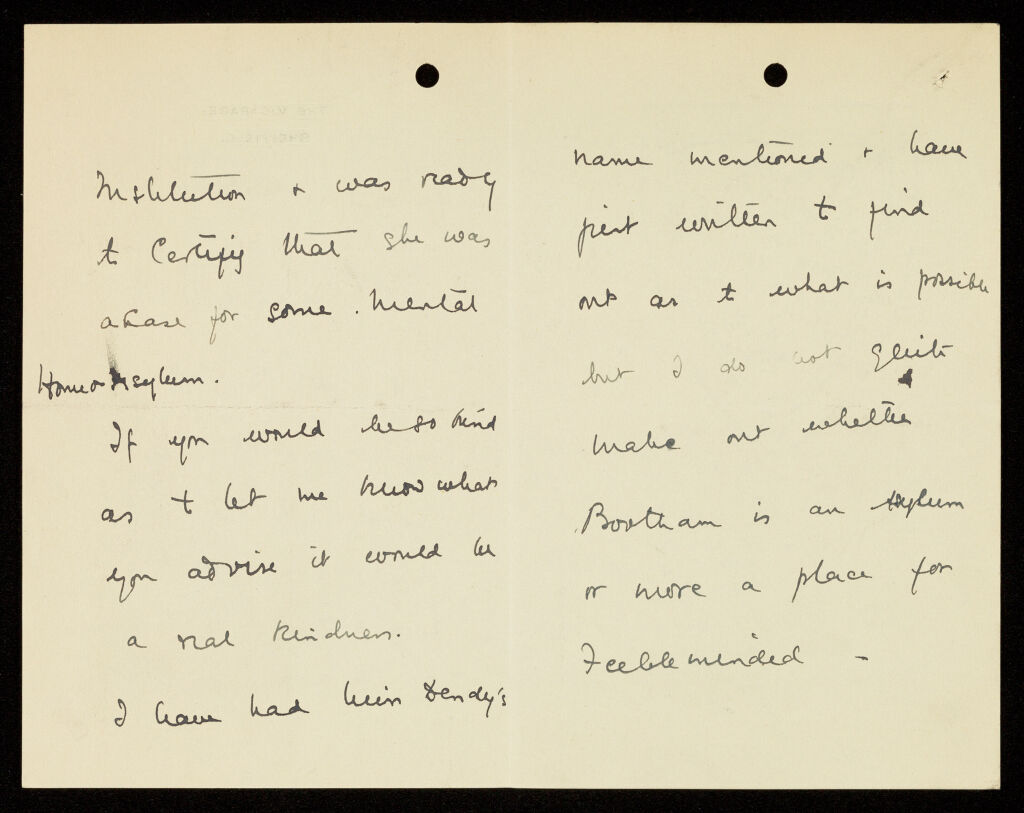 Institution & was ready
to Certify that she was
a case for some Mental
Home or Asylum.
If you would be so kind
as to let me know what
you advise it would be
a real kindness.
I have had Miss Dendy's
name mentioned & have
just written to find
out as to what is possible
but I do not quite
make out whether
Bootham is an Asylum
or more a place for
Feebleminded -